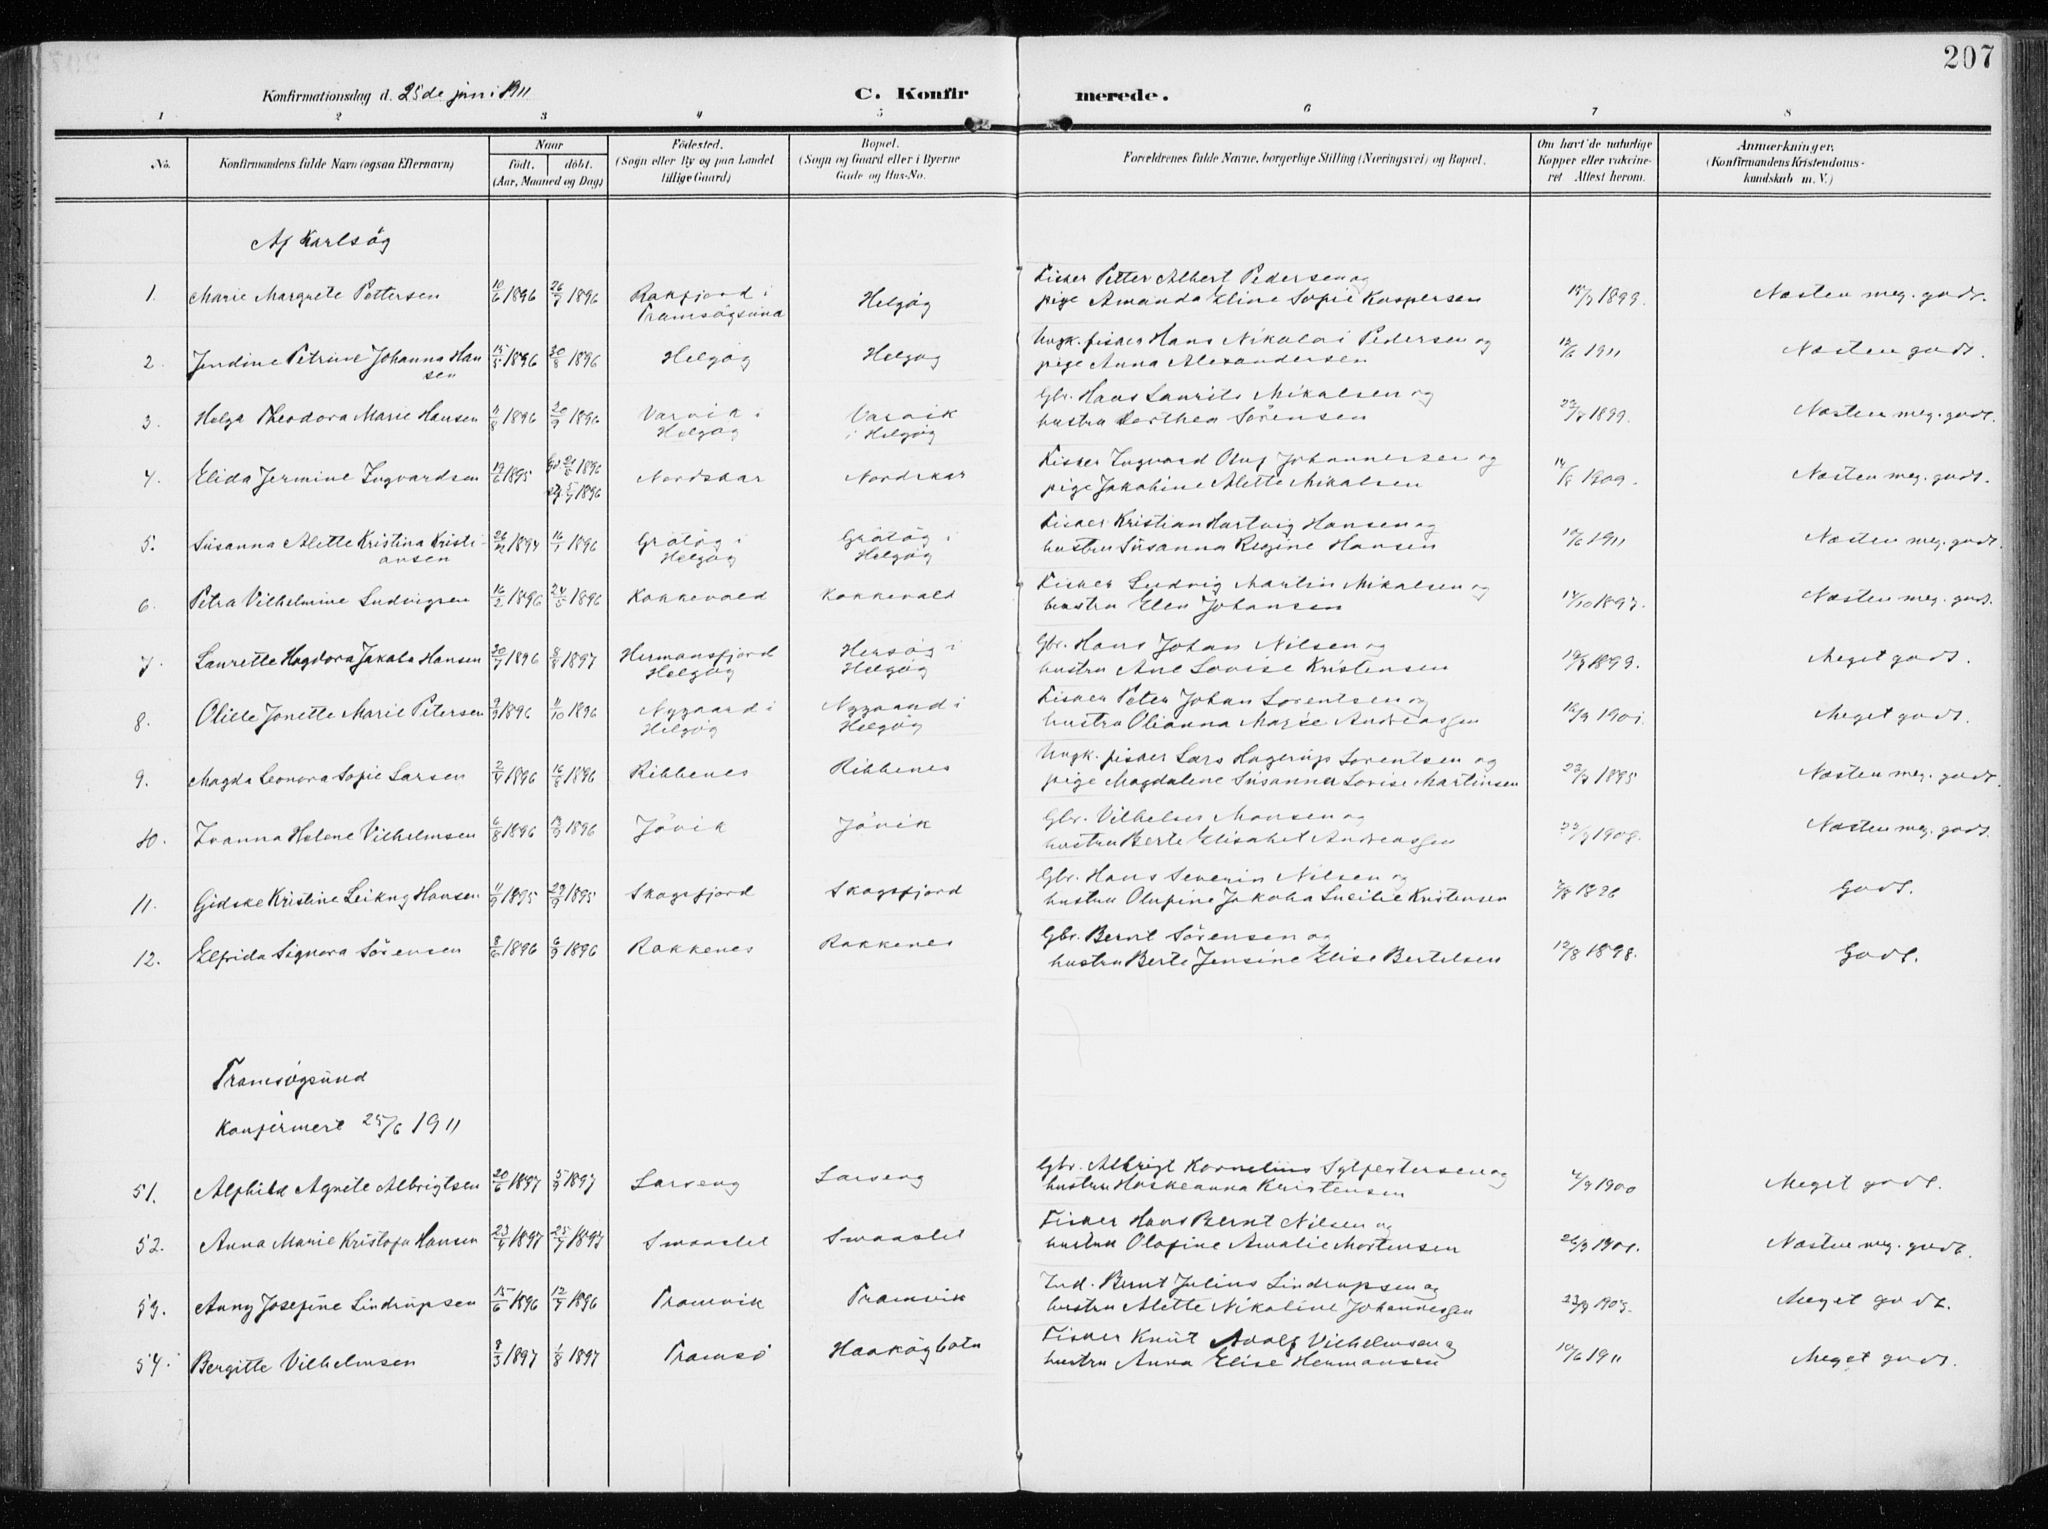 207
Konfirmationsdag d. 25de juni 1911 C. Konfirmerede.
1 2 3 4 5 6 7 8
No. Konfirmandens fulde Navn (ogsaa Efternavn) Naar født. døbt. (Aar, Maaned og Dag) Fødested. (Sogn eller By og paa Landet tillige Gaard) Bopæl. (Sogn og Gaard eller i Byerne Gade og Hus-No. Forældrenes fulde Navne, borgerlige Stilling (Næringsvei) og Bopæl. Om havt de naturlige Kopper eller vakcineret Attest herom. Anmærkninger. (Konfirmandens Kristendomskundskab m. V.)
Af Karlsøg
1. Marie Margrete Pettersen 10/6 1896 26/7 1896 Rakfjord i Tromsøgsund Helgøg Fisker Petter Albert Pedersen og pige Amanda Eline Sofie Kaspersen 1899. Næsten meg. godt.
2. Jendine Petrine Johanna Hansen 15/5 1896 30/8 1896 Helgøg Helgøg Ungk. fisker Hans Nikolai Pedersen og pige Anna Alexandersen 1911 Næsten godt.
3. Helga Theodora Marie Hansen 11/8 1896 20/9 1896 Varvik i Helgøg Varvik i Helgøg Gbr. Hans Laurits Mikalsen og hustru Dorthea Sørensen 1899. Næsten meg. godt.
4. Elida Jermine Ingvardsen 19/6 1895 1896 1896 Nordskar Nordskar Fisker Ingvard Oluf Johannessen og pige Jakobine Alette Mikalsen 1909. Næsten meg. godt.
5. Susanna Alette Kristina Kristiansen 1894 16/1 1896 Grøtøg i Helgøg Grøtøg i Helgøg Fisker Kristian Hartvig Hansen og hustru Susanna Regine Hansen 10/6 1911 Næsten meg. godt.
6. Petra Vilhelmine Ludvigsen 16/2 1896 24/5 1896 Kokkevold Kokkevold Fisker Ludvig Martin Mikalsen og hustru Elen Johansen 14/10 1897. Næsten meg. godt.
7. Laurette Hagdora Jakoba Hansen 1896 1897 Hermansfjord Helgøg Hersøg i Helgøg Gbr. Hans Johan Nilsen og hustru Ane Lovise Kristensen 1899. Meget godt.
8. Olille Jonette Marie Petersen 1896 11/10 1896 Nygaard i Helgøg Nygaard i Helgøg Fisker Peter Johan Lorentsen og hustru Olianna Marie Andreassen 1901. Meget godt.
9. Magda Leonora Sofie Larsen 2/4 1896 16/8 1896 Ribbenes Ribbenes Ungk. fisker Lars Hagerup Lorentsen og pige Magdalene Susanna Lovise Martinsen 1895 Næsten meg. godt
10. Ivanna Helene Vilhelmsen 6/8 1896 13/9 1896 Jøvik Jøvik Gbr. Vilhelm Monsen og hustru Berte Elisabet Andreassen 1908. Næsten meg. godt.
11. Gidske Kristine Leikny Hansen 11/9 1895 29/9 1895 Skogsfjord Skogsfjord Gbr. Hans Severin Nilsen og hustru Olufine Jakoba Lucilie Kristensen 1896 Godt.
12. Elfrida Signora Sørensen 8/6 1896 6/9 1896 Rakkenes Rakkenes Gbr. Bernt Sørensen og hustru Berte Jensine Elise Bertelsen 12/8 1898. Godt.
Tromsøgsund
Konfirmert 25/6 1911
51. Alphild Agnete Albrigtsen 20/6 1897 5/9 1897 Larseng Larseng Gbr. Albrigt Kornelius Sylfestersen og hustru Haskeanna Kristensen 1900 Meget godt.
52. Anna Marie Kristofa Hansen 23/4 1897 25/7 1897 Smaaslet Smaaslet Fisker Hans Bernt Nilsen og hustru Olafine Amalie Mortensen 1901. Næsten meg. godt.
53. Anny Josefine Lindrupsen 15/6 1896 12/7 1896 Tromvik Tromvik Ind. Bernt Julius Lindrupsen og hustru Alette Nikoline Johannessen 1903. Meget godt.
54. Bergitte Vilhelmsen 8/3 1897 1/8 1897 Tromsø Haakøgbotn Fisker Knut Adolf Vilhelmsen og hustru Anna Elise Hermansen 10/6 1911 Meget godt.